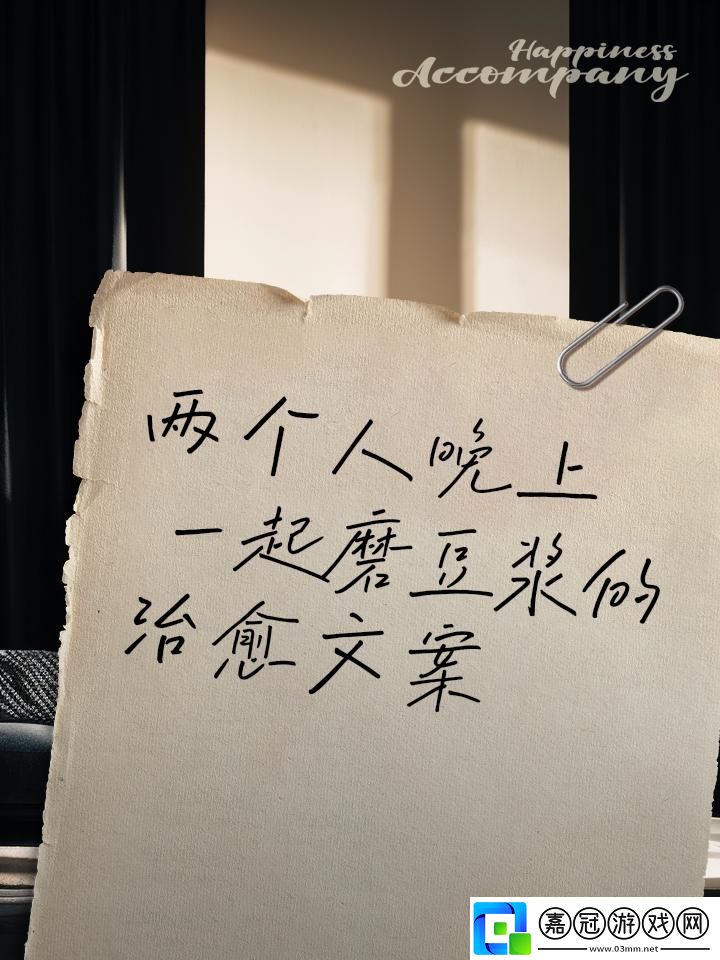 Happiness
Accompany
两个人晚上
一起磨豆浆的
治愈文案
嘉冠游戏网
www.03mm.net